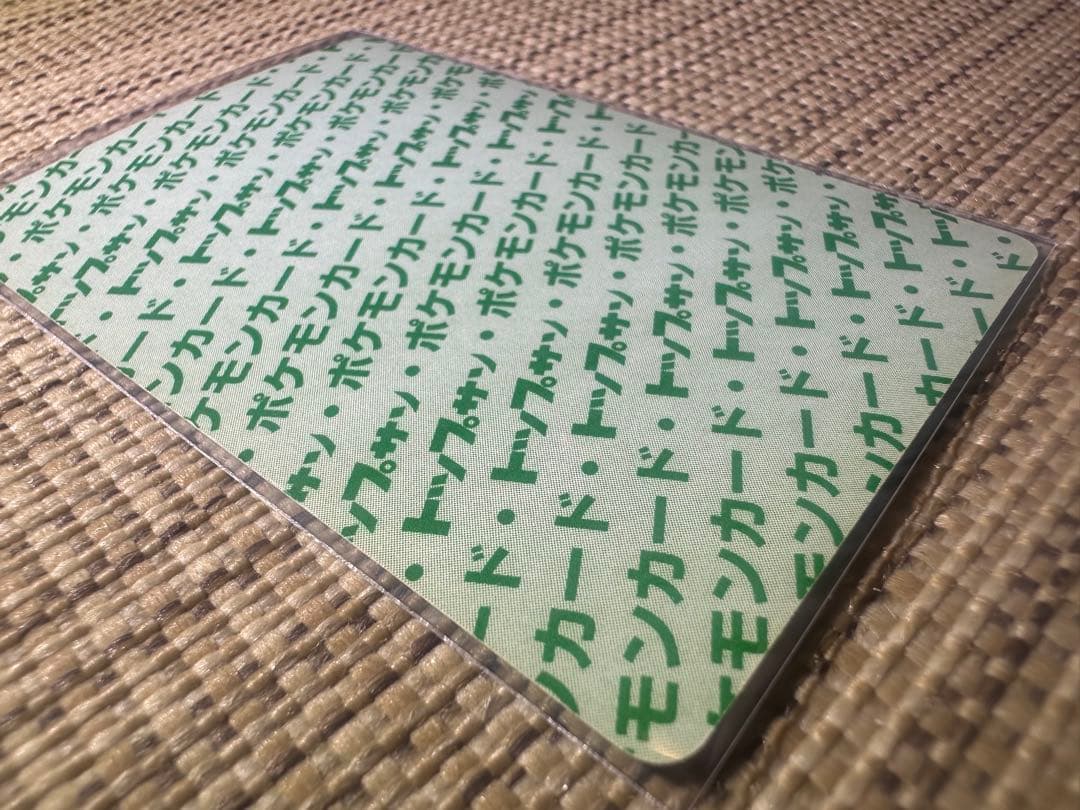 モンカ
・ポケモンカード
トップサン・ポケモンカード・
ド・トップサン・ポケモンカード・
ード・トップサン・ポケモンカード
ンカード・トップサン・ポケモンカ
ケモンカード・トップサン・ポケモ
・ポケモンカード・トップサン・ポケ
サン・ポケモンカード・トップサン・
プサン・ポケモンカード・トップサン
・トップサン・ポケモンカード・トップ
ード・トップサン・ポケモンカード・
ンカード・トップサン・ポケモンカード
モンカード・トップサン・ポケモンカ
ケモンカード・トップサン・ポケモ
モンカード・トップサン・ポケ
ンカード・トップサン・
カード・トップサン
ード・トッ